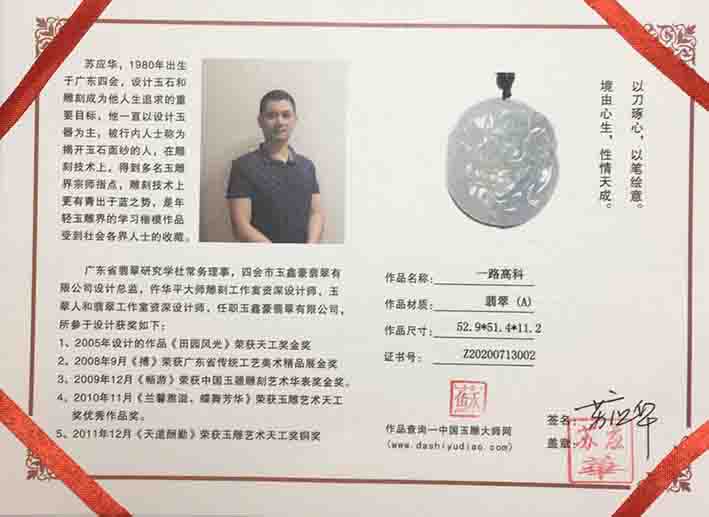 苏应华，1980年出生
于广东四会，设计玉石和
雕刻成为他人生追求的重
要目标，他一直以设计玉
器为主，被行内人士称为
揭开玉石面纱的人，在雕
刻技术上，得到多名玉雕
界宗师指点，雕刻技术上
更有青出于蓝之势，是年
轻玉雕界的学习楷模作品
受到社会各界人士的收藏。
广东省翡翠研究学社常务理事，四会市玉鑫豪翡翠有
限公司设计总监，仵华平大师雕刻工作室资深设计师、玉
翠人和翡翠工作室资深设计师、任职玉鑫豪翡翠有限公司，
所参于设计获奖如下：
1、2005年设计的作品《田园风光》荣获天工奖金奖
2、2008年9月《搏》荣获广东省传统工艺美术精品展金奖
3、2009年12月《畅游》荣获中国玉器雕刻艺术华表奖金奖。
4、2010年11月《兰馨雅溢、蝶舞芳华》荣获玉雕艺术天工
奖优秀作品奖。
5、2011年12月《天道酬勤》荣获玉雕艺术天工奖铜奖
以刀琢心，以笔绘意。
境由心生，性情天成。
作品名称： 一路高科
作品材质： 翡翠（A）
作品尺寸： 52.9*51.4*11.2
证书号： Z20200713002
作品查询—中国玉雕大师网
(www.dashiyudiao.com)
签名： 苏应华
盖章：
苏应
华